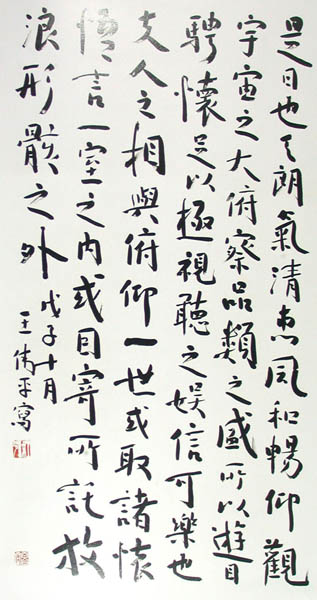 是日也天朗氣清惠風和暢仰觀
宇宙之大俯察品類之盛所以遊目
騁懷足以極視聽之娱信可樂也
夫人之相與俯仰一世或取諸懷
悟言一室之内或因寄所託放
浪形骸之外 戊子十月
王偉平寫